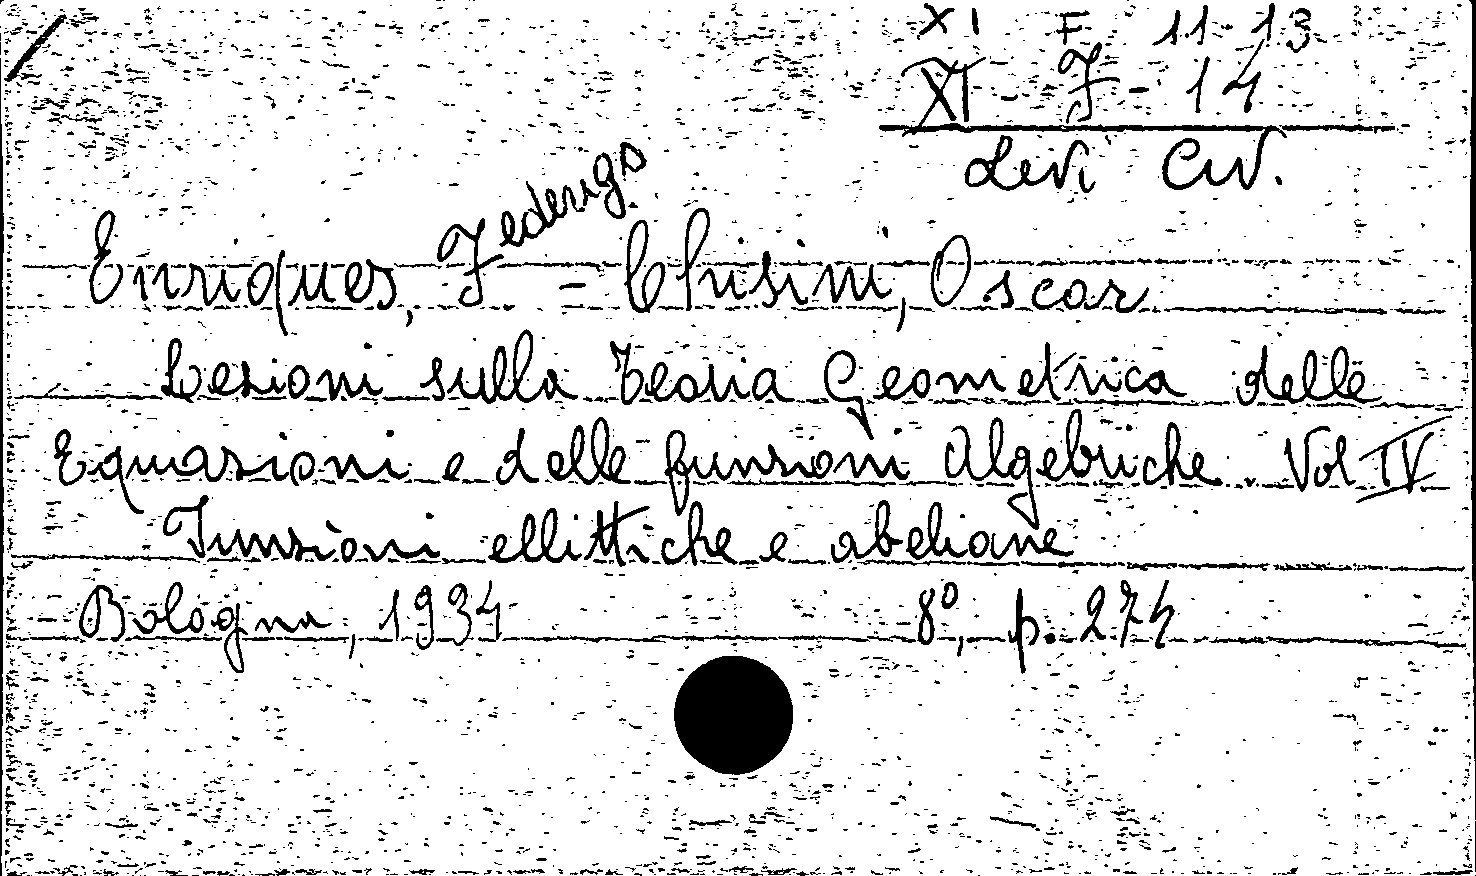 XI F 11-13
XI - F - 14
Levi Civ.
Enriques, Federigo = Chisini, Oscar
Lezioni sulla Teoria Geometrica delle
Equazioni e delle funzioni Algebriche. Vol IV
Funzioni ellittiche e abeliane
Bologna, 1934 8º, p. 274